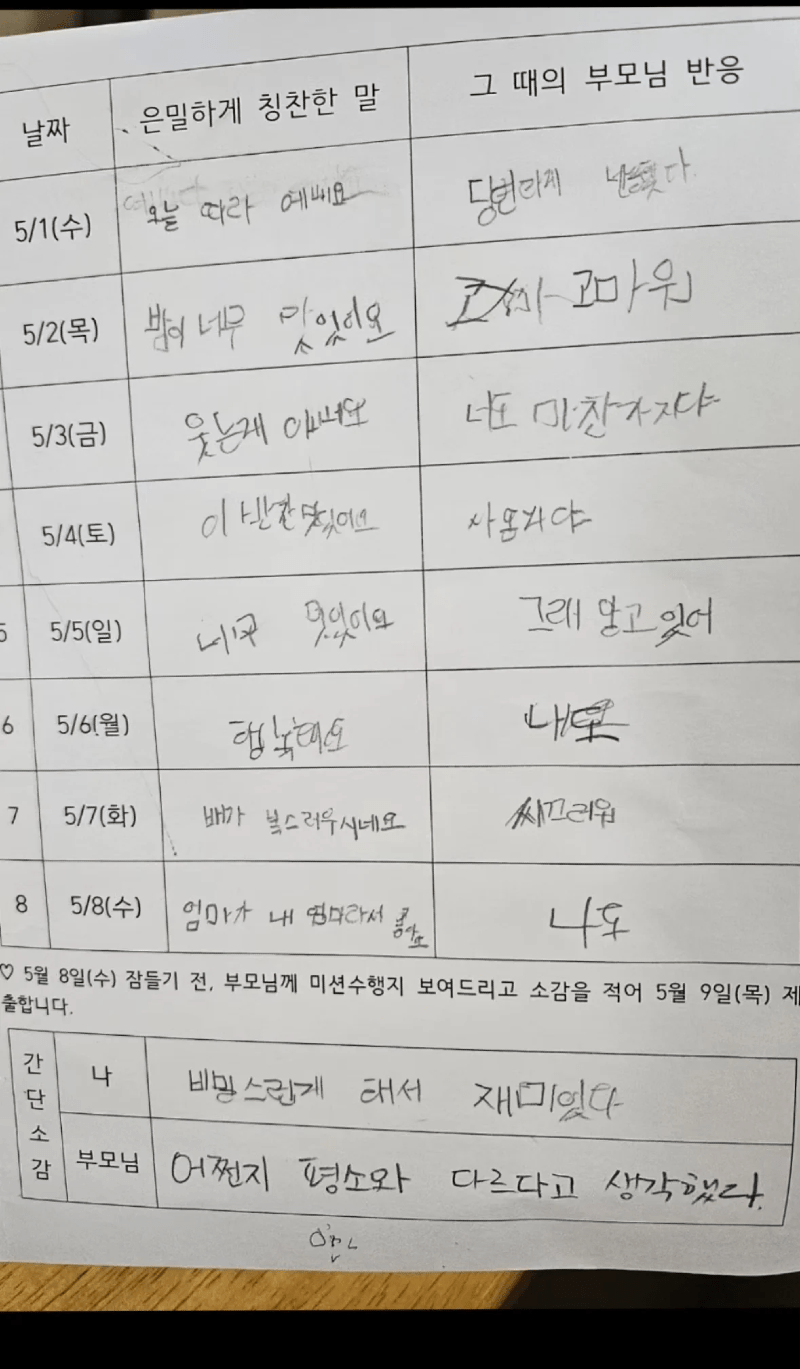 날짜 은밀하게 칭찬한 말 그 때의 부모님 반응
5/1(수) 오늘 따라 예뻐요
5/2(목) 밤이 너무 맛있어요 고마워
5/3(금) 웃는게 너도 마찬가지다
5/4(토) 이 맛있어요
5/5(일) 맛있어요 그래 알고 있어
6 5/6(월) 행복해요 내도
7 5/7(화) 배가 복스러우시네요 씨끄러워
8 5/8(수) 엄마가 내 엄마라서 좋아요 나도
♡ 5월 8일(수) 잠들기 전, 부모님께 미션수행지 보여드리고 소감을 적어 5월 9일(목) 제
출합니다.
간단소감
나 비밍스럽게 해서 재미있다
부모님 어쩐지 평소와 다르다고 생각했다.